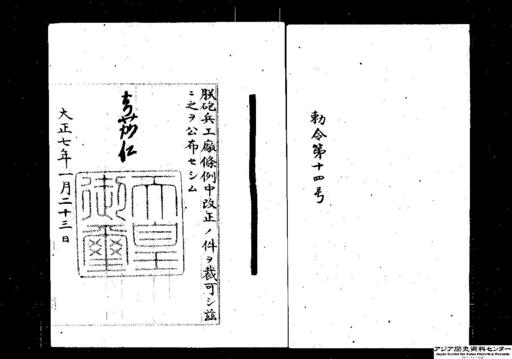 勅令第十四号
朕砲兵工廠條例中改正ノ件ヲ裁可シ茲
ニ之ヲ公布セシム
嘉仁
天皇御璽
大正七年一月二十三日
アジア歴史資料センター
Japan Center for Asian Historical Records